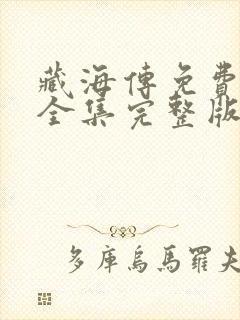 藏海傳免費
全集完整版
多庫烏馬羅夫